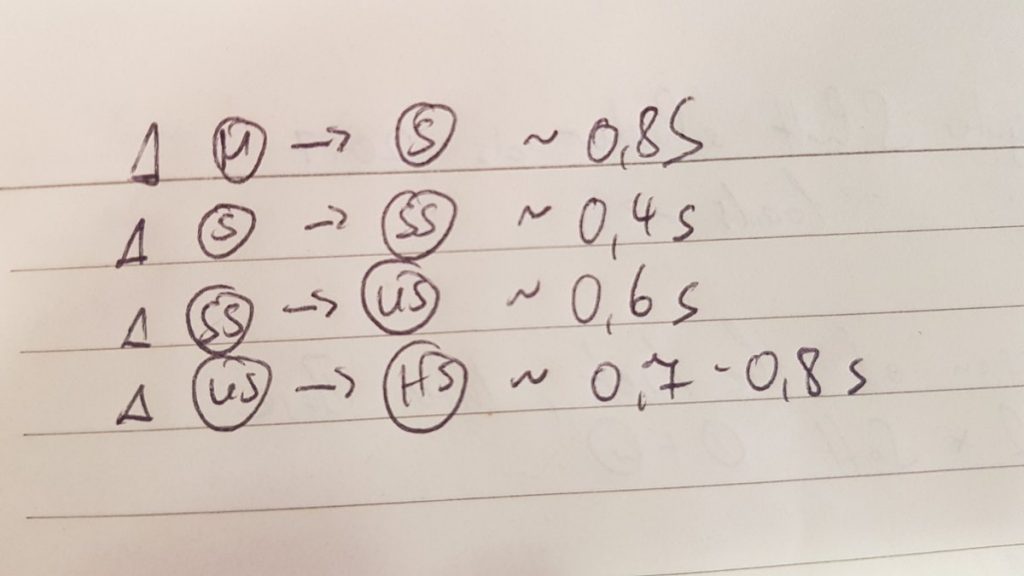 Δ M → S ~ 0,8S
Δ S → SS ~ 0,4s
Δ SS → US ~ 0,6s
Δ US → HS ~ 0,7-0,8s